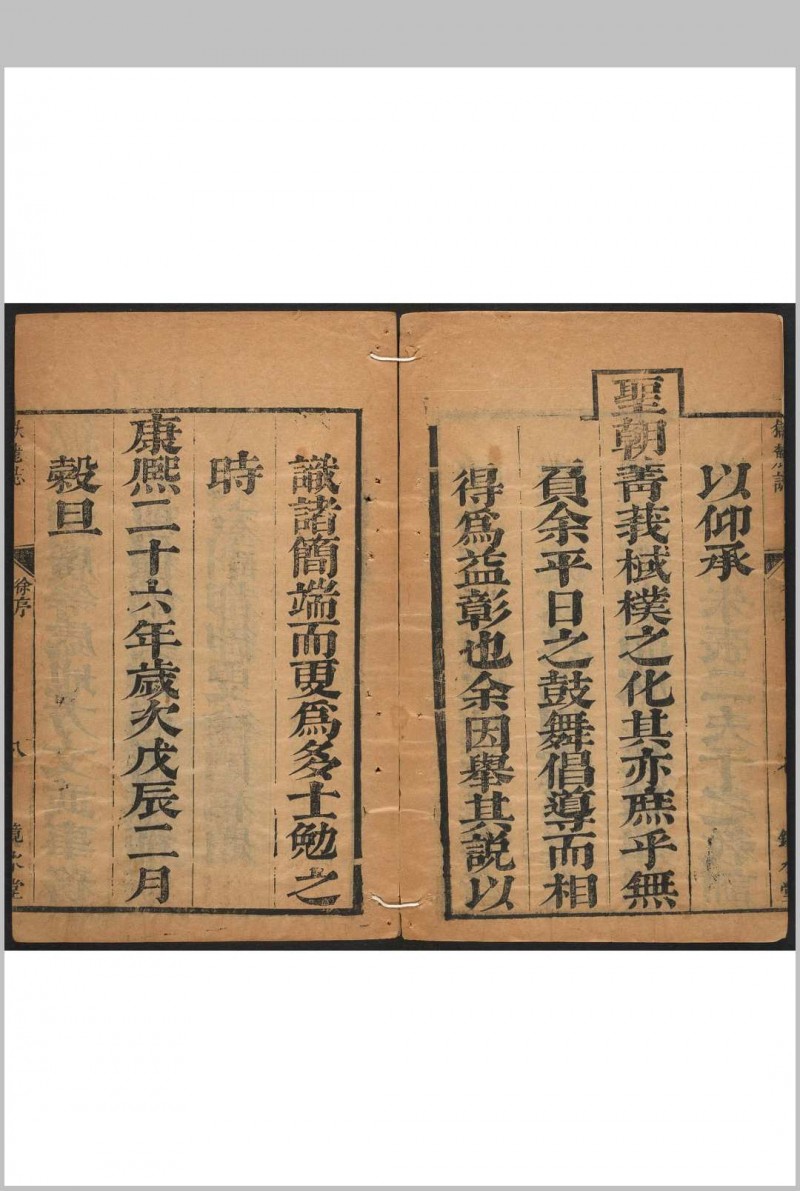 以仰承
聖朝菁莪棫樸之化其亦庶乎無
負余平日之鼓舞倡導而相
得爲益彰也余因舉其説以
識諸簡端而更爲多士勉之
時
康熙二十六年歲次戊辰二月
穀旦
徐序